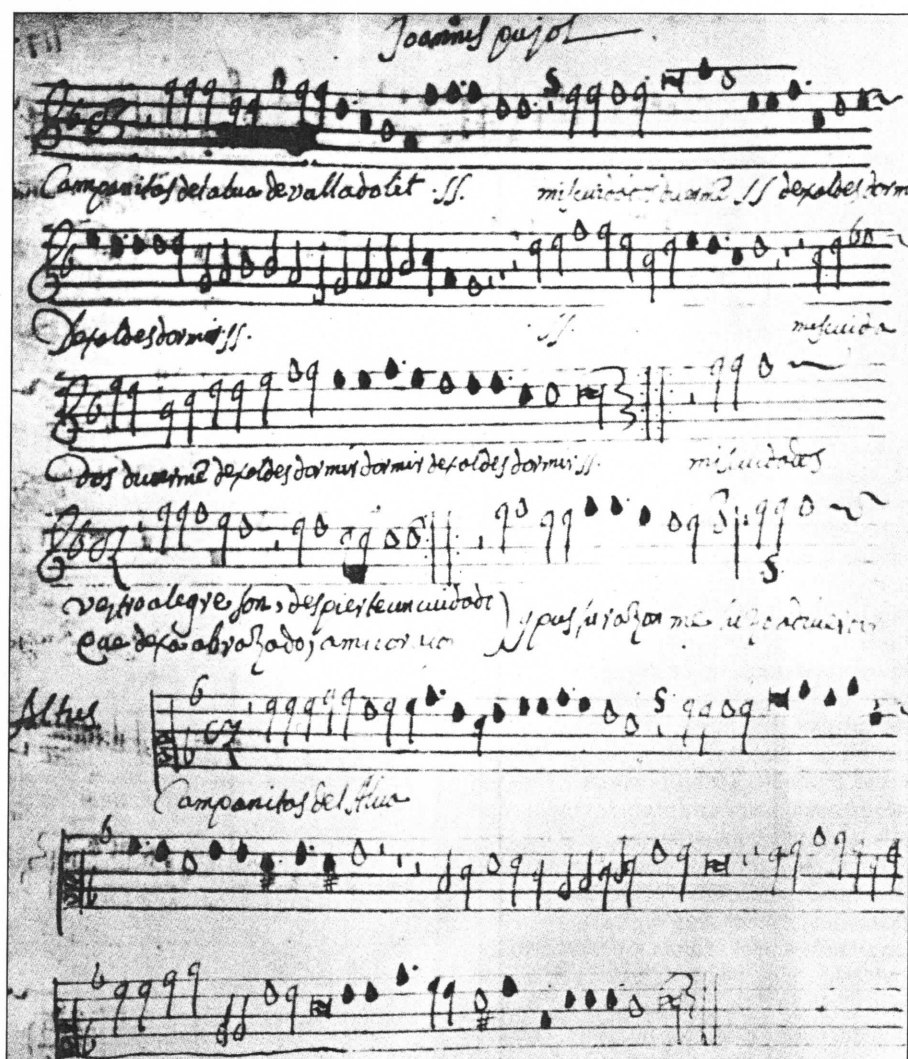 Joannis pujol
Campanitas del alua de valladolit .ſſ. mis cuidados duermē ſſ dexaldes dorm
dexaldes dormir ſſ. ſſ. mis cuida
dos duermē dexaldes dormir dormir dexaldes dormir ſſ. mis cuidados
vestro alegre son, despierte un cuidado
que dexa abrazado, a mi
Altus
Campanitas del Alua